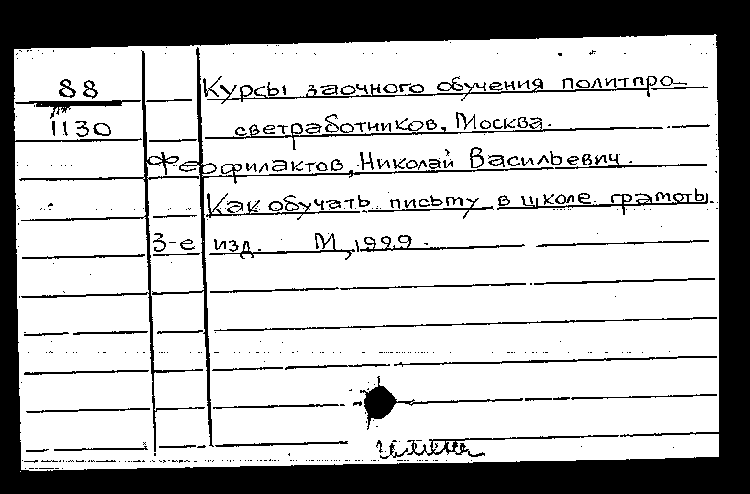 88
1130
Курсы заочного обучения политпро-
светработников, Москва.
Феофилактов, Николай Васильевич.
Как обучать письму в школе грамоты.
3-е изд. М, 1929.